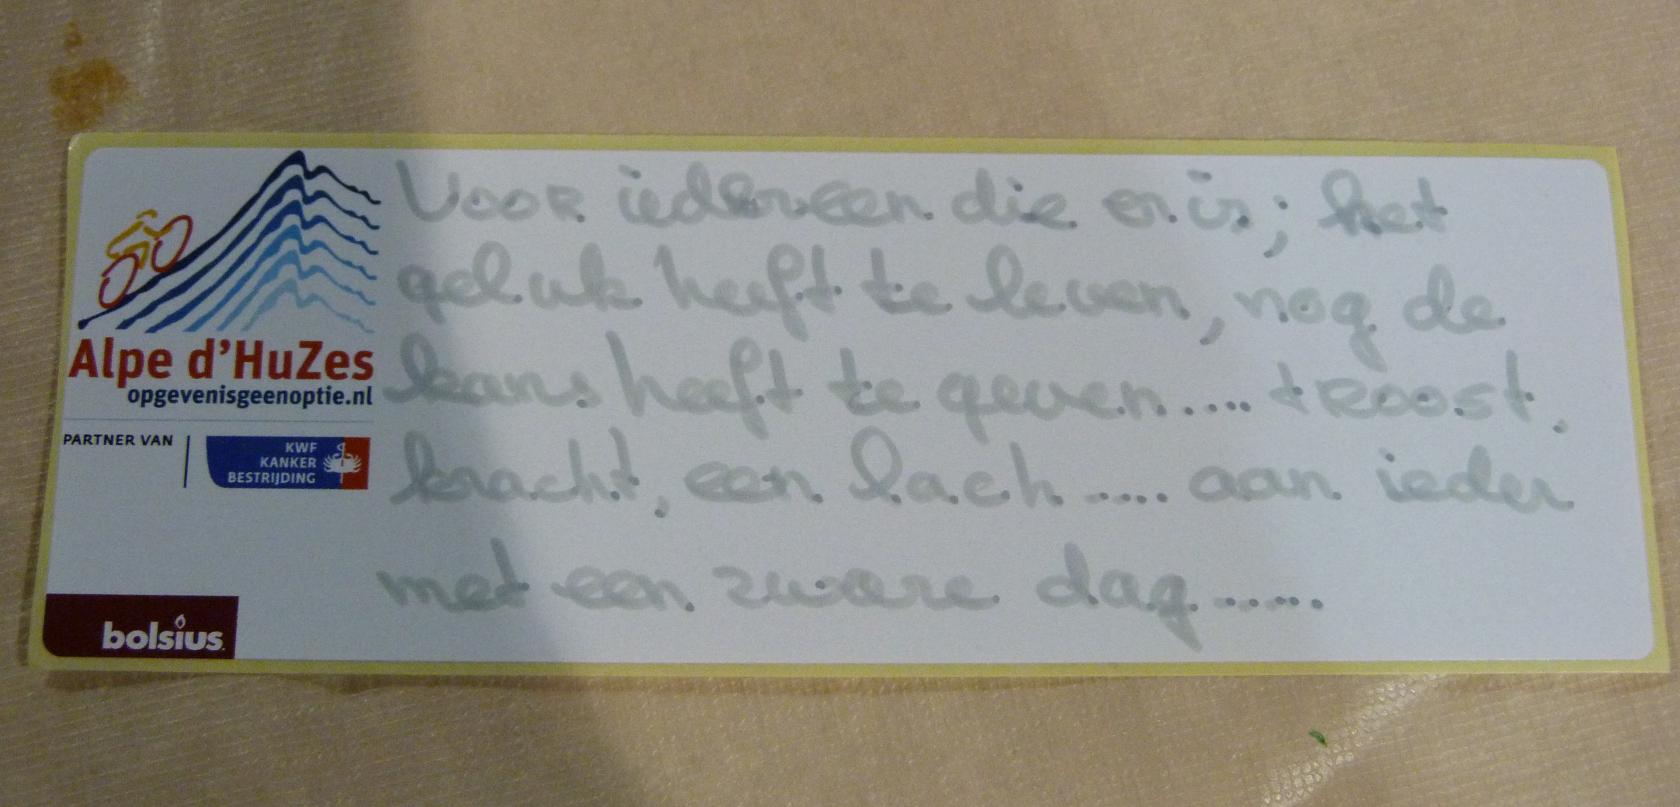 Alpe d'HuZes
opgevenisgeenoptie.nl
PARTNER VAN
KWF
KANKER
BESTRIJDING
bolsius
Voor iedereen die er is; het
geluk heeft te leven, nog de
kans heeft te geven.... troost,
kracht, een lach.... aan ieder
met een zware dag.....